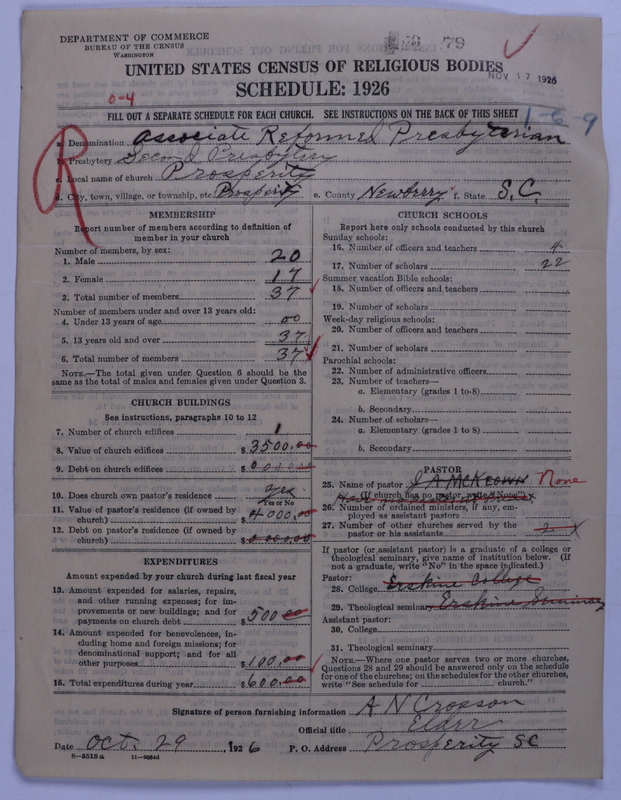 DEPARTMENT OF COMMERCE
BUREAU OF THE CENSUS
WASHINGTON
79
UNITED STATES CENSUS OF RELIGIOUS BODIES
NOV 17 1926
SCHEDULE: 1926
0-4
FILL OUT A SEPARATE SCHEDULE FOR EACH CHURCH. SEE INSTRUCTIONS ON THE BACK OF THIS SHEET
1-6-9
R
a. Denomination Associate Reformed Presbyterian
b. Presbytery Second Presbytery
c. Local name of church Prosperity
d. City, town, village, or township, etc. Prosperity e. County Newberry f. State S.C.
MEMBERSHIP
Report number of members according to definition of
member in your church
Number of members, by sex:
1. Male 20
2. Female 17
3. Total number of members 37
Number of members under and over 13 years old:
4. Under 13 years of age 00
5. 13 years old and over 37
6. Total number of members 37
NOTE.—The total given under Question 6 should be the
same as the total of males and females given under Question 3.
CHURCH BUILDINGS
See instructions, paragraphs 10 to 12
7. Number of church edifices 1
8. Value of church edifices $3500.00
9. Debt on church edifices $
10. Does church own pastor's residence yes
Yes or No
11. Value of pastor's residence (if owned by
church) $4000.00
12. Debt on pastor's residence (if owned by
church) $0.000.00
EXPENDITURES
Amount expended by your church during last fiscal year
13. Amount expended for salaries, repairs,
and other running expenses; for im-
provements or new buildings; and for
payments on church debt $500.00
14. Amount expended for benevolences, in-
cluding home and foreign missions; for
denominational support; and for all
other purposes $100.00
15. Total expenditures during year $600.00
CHURCH SCHOOLS
Report here only schools conducted by this church
Sunday schools:
16. Number of officers and teachers 4
17. Number of scholars 22
Summer vacation Bible schools:
18. Number of officers and teachers
19. Number of scholars
Week-day religious schools:
20. Number of officers and teachers
21. Number of scholars
Parochial schools:
22. Number of administrative officers
23. Number of teachers—
a. Elementary (grades 1 to 8)
b. Secondary
24. Number of scholars—
a. Elementary (grades 1 to 8)
b. Secondary
PASTOR
25. Name of pastor J A McKeown None
(If church has no pastor, write "None")
26. Number of ordained ministers, if any, em-
ployed as assistant pastors
27. Number of other churches served by the
pastor or his assistants 2
If pastor (or assistant pastor) is a graduate of a college or
theological seminary, give name of institution below. (If
not a graduate, write "No" in the space indicated.)
Pastor:
28. College Erskine College
29. Theological seminary Erskine Seminary
Assistant pastor:
30. College
31. Theological seminary
NOTE.—Where one pastor serves two or more churches,
Questions 28 and 29 should be answered only on the schedule
for one of the churches; on the schedules for the other churches,
write "See schedule for church."
Signature of person furnishing information A N Crosson
Official title Elder
Date Oct. 29, 1926 P. O. Address Prosperity SC